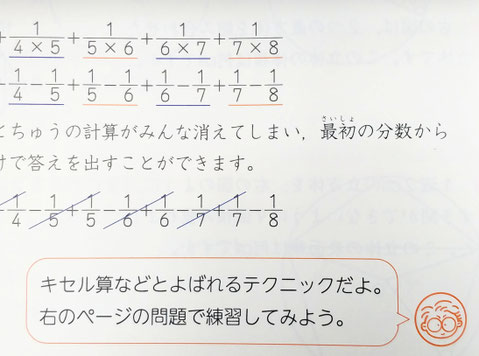 +1/(4×5)+1/(5×6)+1/(6×7)+1/(7×8)
+1/4-1/5+1/5-1/6+1/6-1/7+1/7-1/8
とちゅうの計算がみんな消えてしまい，最初の分数から
さいしょ
けで答えを出すことができます。
1/4-1/5+1/5-1/6+1/6-1/7+1/7-1/8
キセル算などとよばれるテクニックだよ。
右のページの問題で練習してみよう。